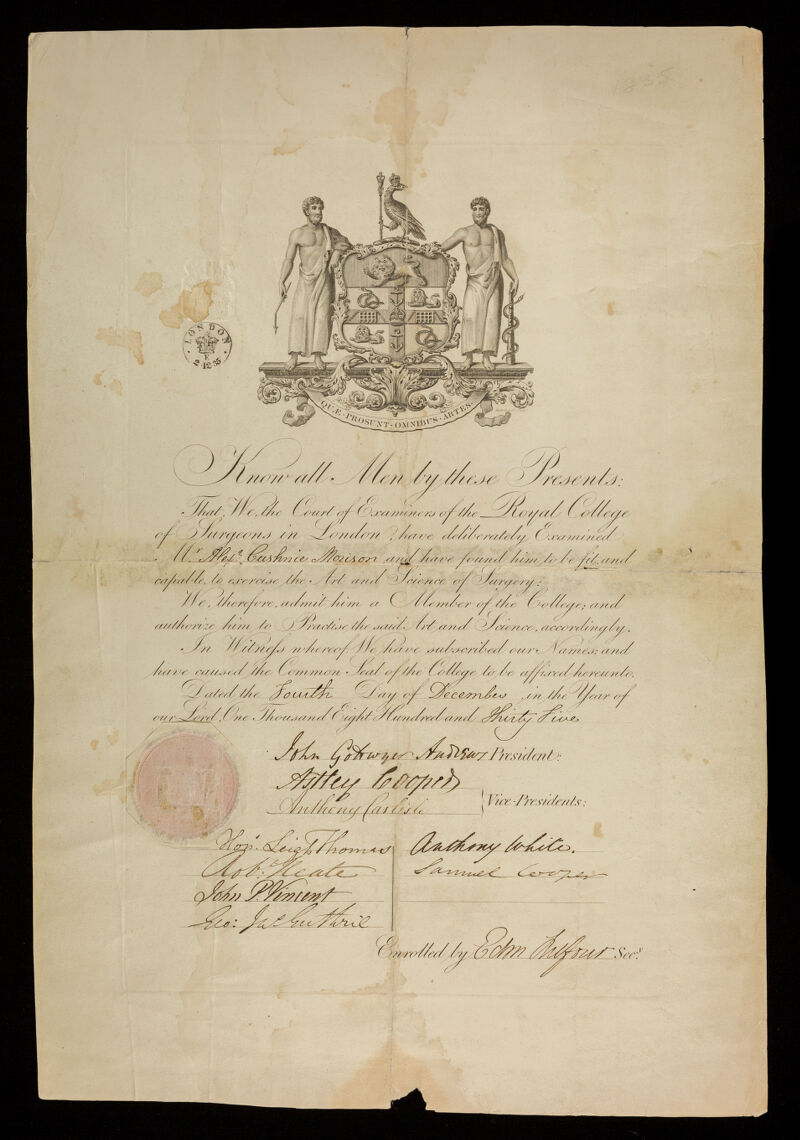 1835
LONDON
F
2·12·35
QUÆ·PROSUNT·OMNIBUS·ARTES·
Know all Men by these Presents:
That, We, the Court of Examiners of the Royal College
of Surgeons in London, have deliberately Examined
Mr. Alexr. Cushnie Morison and have found him to be fit and
capable to exercise the Art and Science of Surgery:
We, therefore, admit him a Member of the College; and
authorize him to Practise the said Art and Science, accordingly.
In Witness whereof, We have subscribed our Names; and
have caused the Common Seal of the College to be affixed hereunto.
Dated the Fourth Day of December in the Year of
our Lord, One Thousand Eight Hundred and Thirty Five
John Goldwyer Andrews President:
Astley Cooper
Anthony Carlisle Vice-Presidents:
Honr. Leigh Thomas Anthony White.
Robt. Keate Samuel Cooper
John P. Vincent
Geo: Jas Guthrie
Enrolled by Edm Belfour Secy.